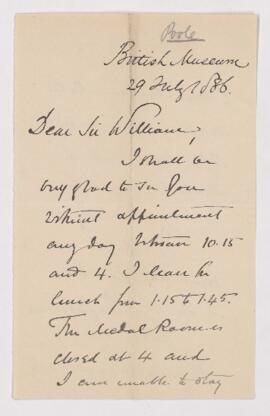 Poole
British Museum
29 July 1886.
Dear Sir William,
I shall be
very glad to see you
without appointment
any day between 10.15
and 4. I leave for
lunch from 1.15 to 1.45.
The Medal Room is
closed at 4 and
I am unable to stay